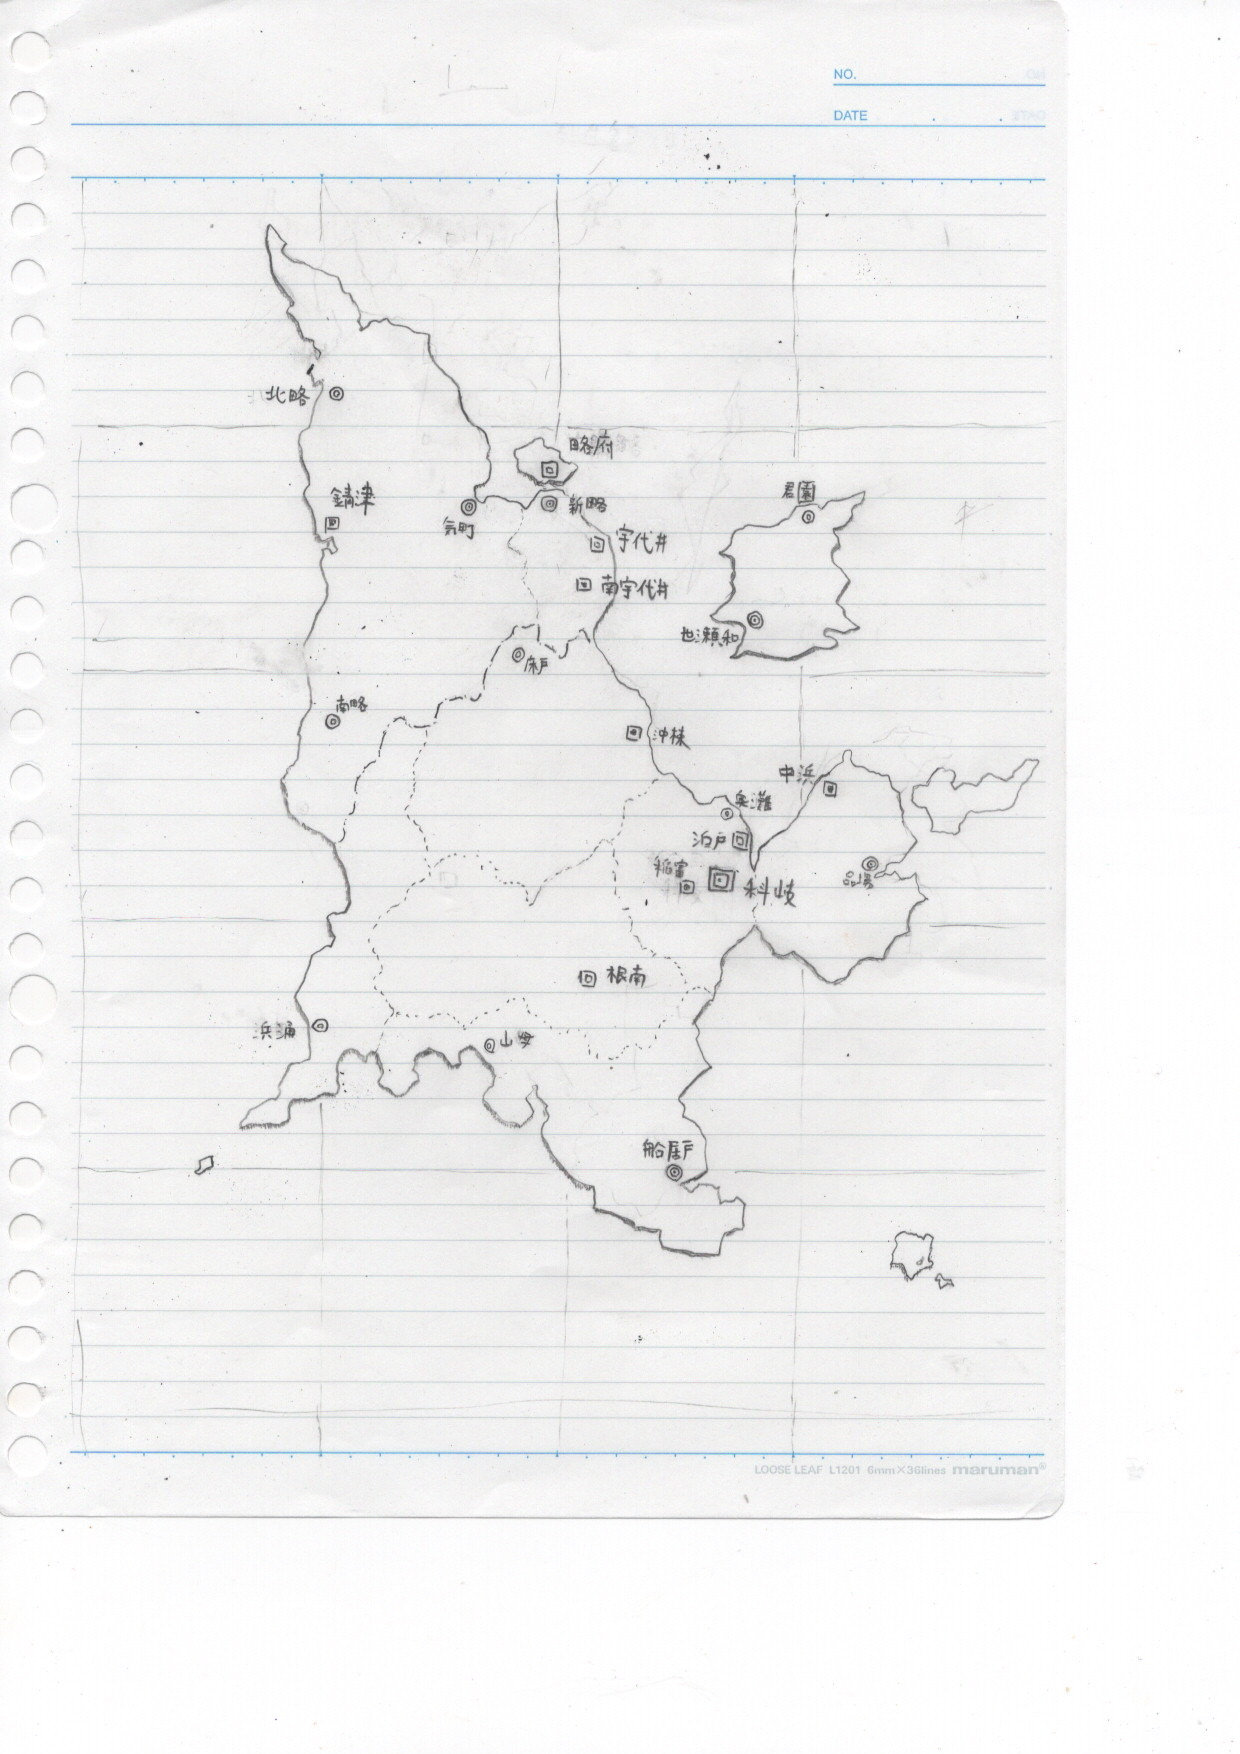 NO.
DATE
北略
略府
錆津
気町
新略
君園
宇代井
南宇代井
世瀬和
床戸
南略
沖棟
中浜
奥灘
泊戸
稲富
科岐
品場
根南
浜涌
山母
船居戸
LOOSE LEAF L1201 6mm×36lines maruman®